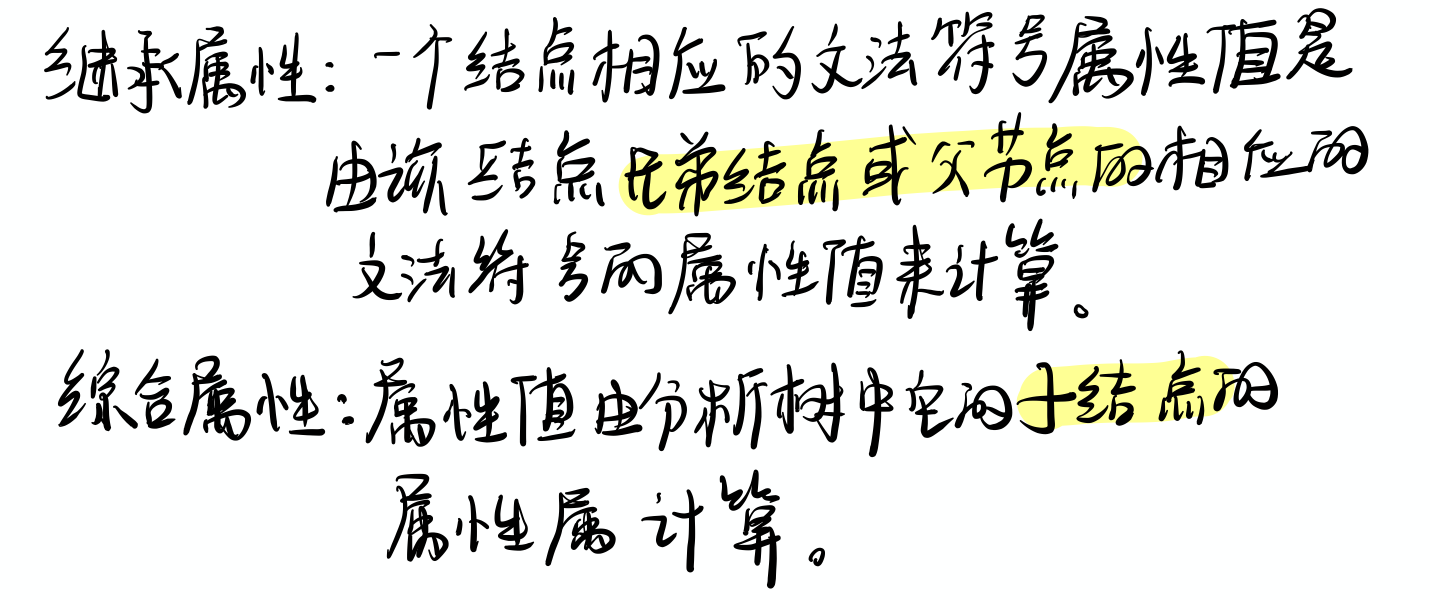 继承属性：一个结点相应的文法符号属性值是
由该结点兄弟结点或父节点的相应的
文法符号的属性值来计算。
综合属性：属性值由分析树中它的子结点的
属性属计算。